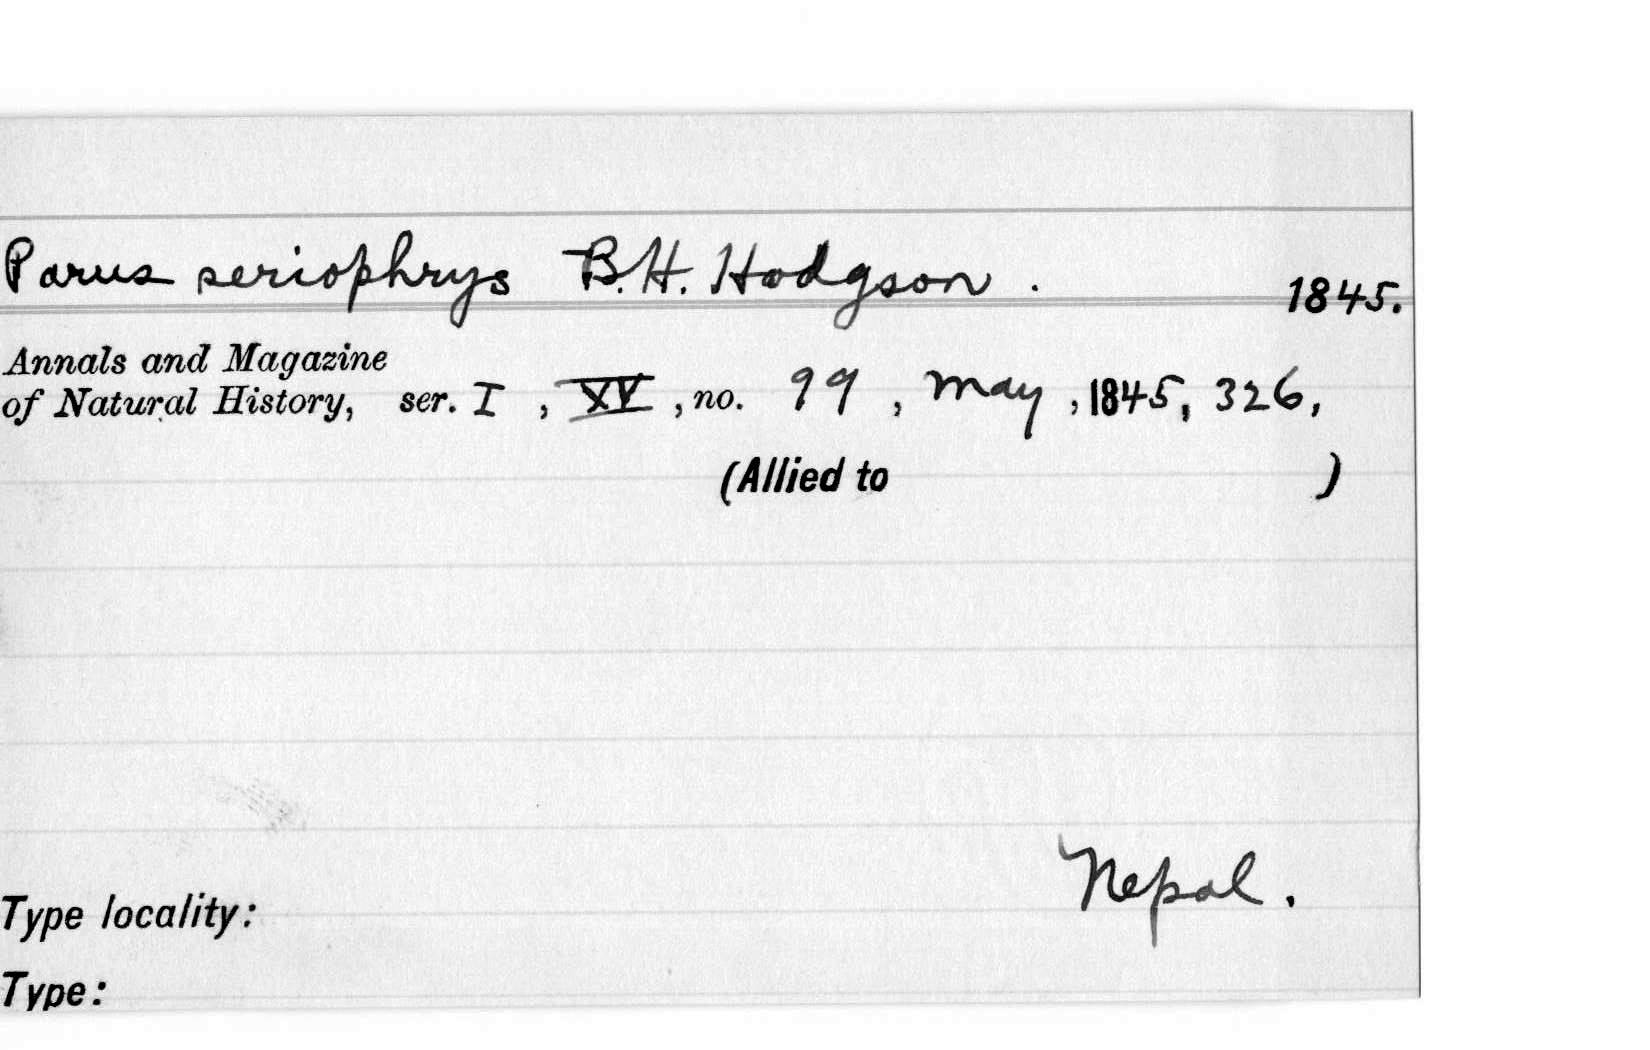 Parus seriophrys B.H. Hodgson . 1845.
Annals and Magazine
of Natural History, ser. I , XV , no. 99 , May , 1845, 326,
(Allied to )
Nepal.
Type locality:
Type: